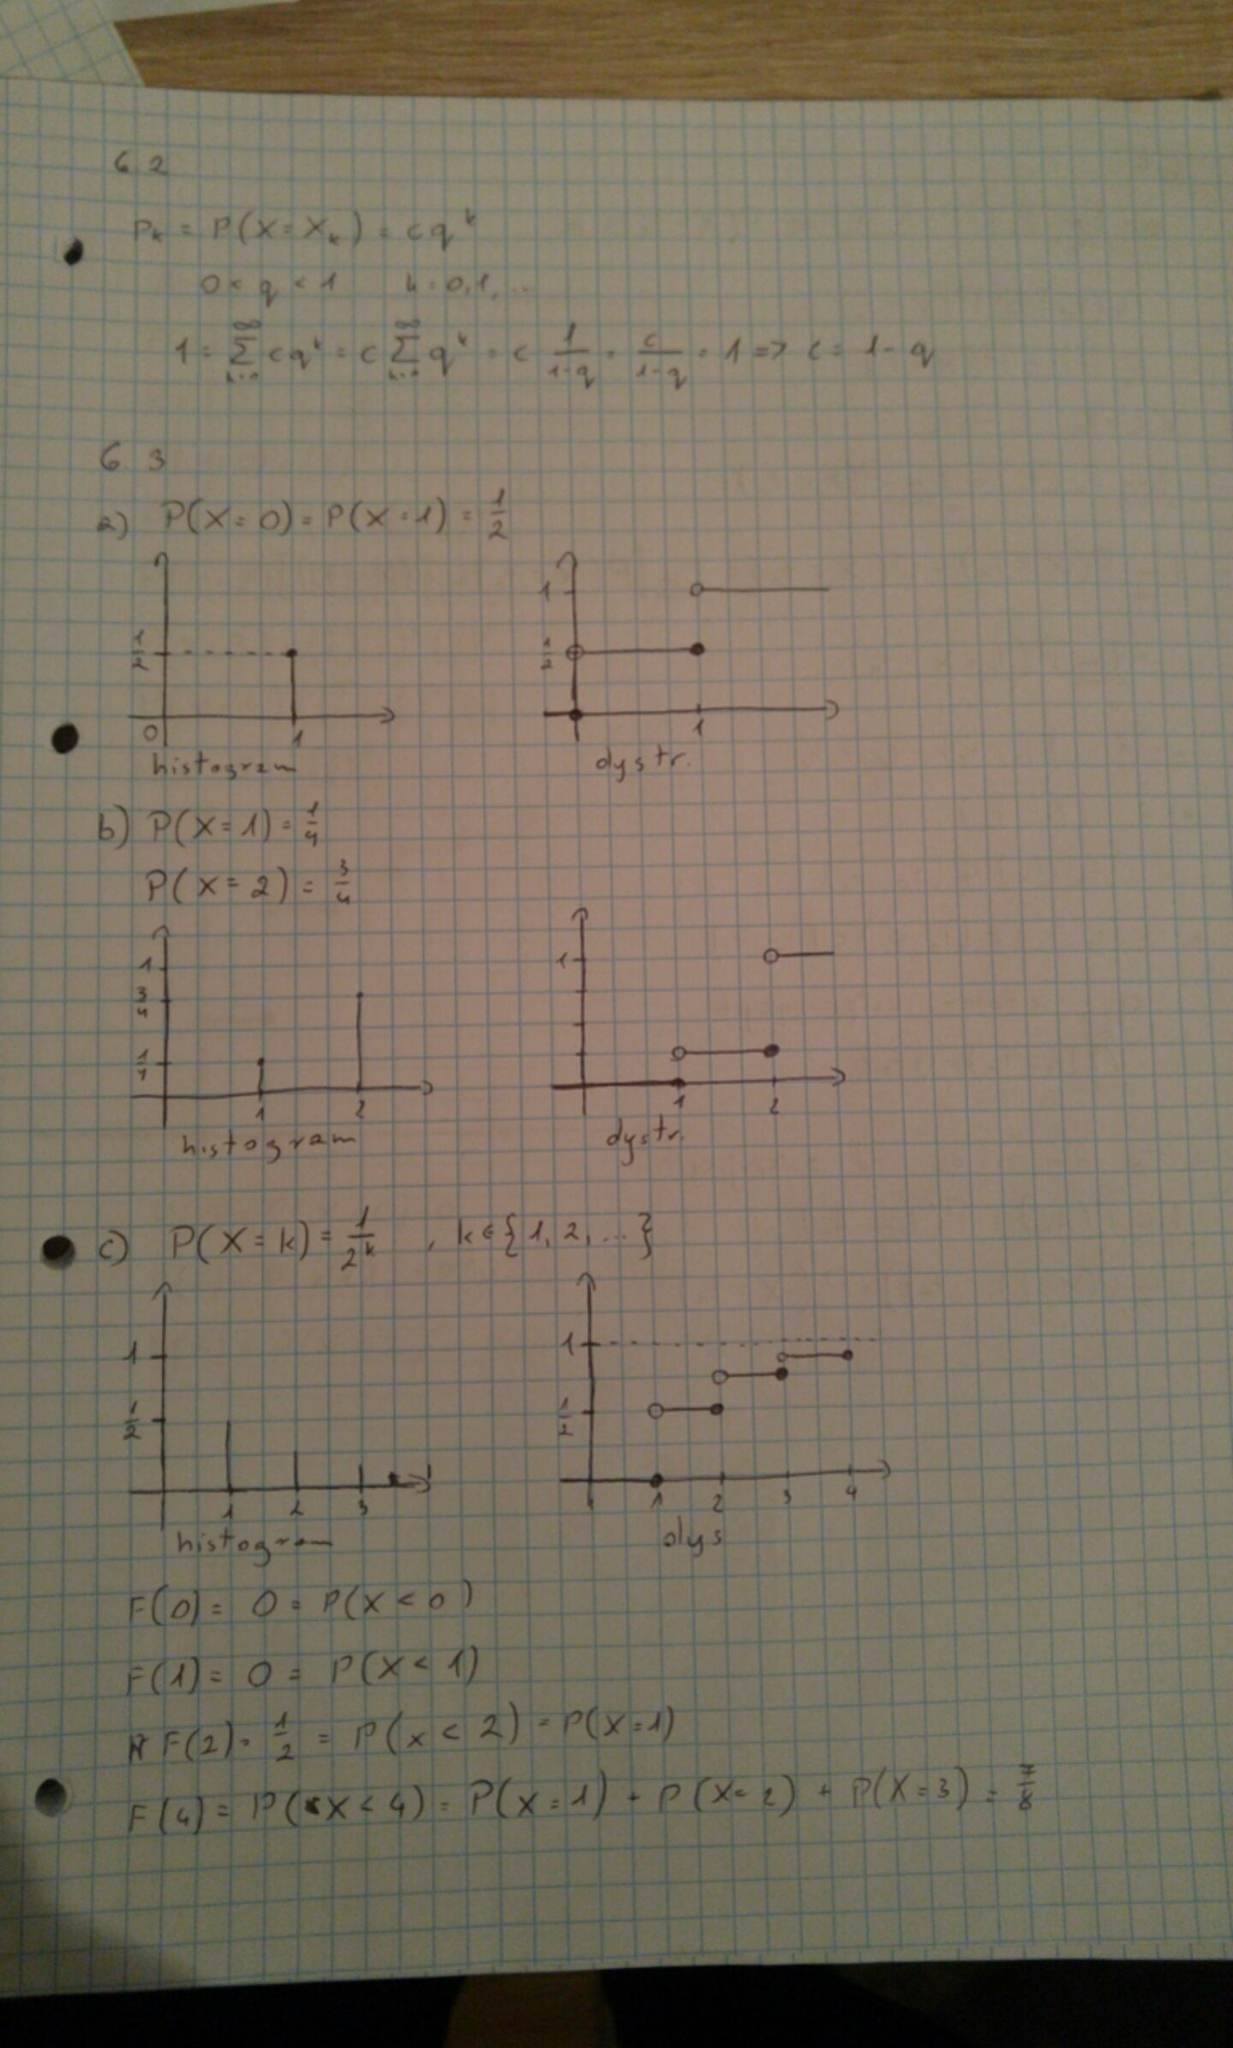 6 2
Pk = P(X = Xk) = cq^k
0 < q < 1 k = 0, 1, ...
1 = ∑_{k=0}^{∞} cq^k = c ∑_{k=0}^{∞} q^k = c 1/(1-q) = c/(1-q) = 1 => c = 1 - q
6 3
a) P(X = 0) = P(X = 1) = 1/2
1/2
0 1
histogram
1
1/2
1
dystr.
b) P(X = 1) = 1/4
P(X = 2) = 3/4
1
3/4
1/4
1 2
histogram
1
1 2
dystr.
c) P(X = k) = 1/2^k , k ∈ {1, 2, ...}
1
1/2
1 2 3
histogram
1
1/2
1 2 3 4
dys
F(0) = 0 = P(X < 0)
F(1) = 0 = P(X < 1)
F(2) = 1/2 = P(x < 2) = P(X = 1)
F(4) = P(X < 4) = P(X = 1) + P(X = 2) + P(X = 3) = 7/8